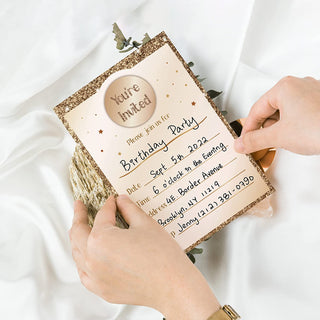 You're
Invited
Please join us for
Birthday Party
Date Sept 5th 2022
Time 6 o'clock in the Evening
Address 4E Border Avenue
Brooklyn, NY 11219
Jenny (212) 381-0390